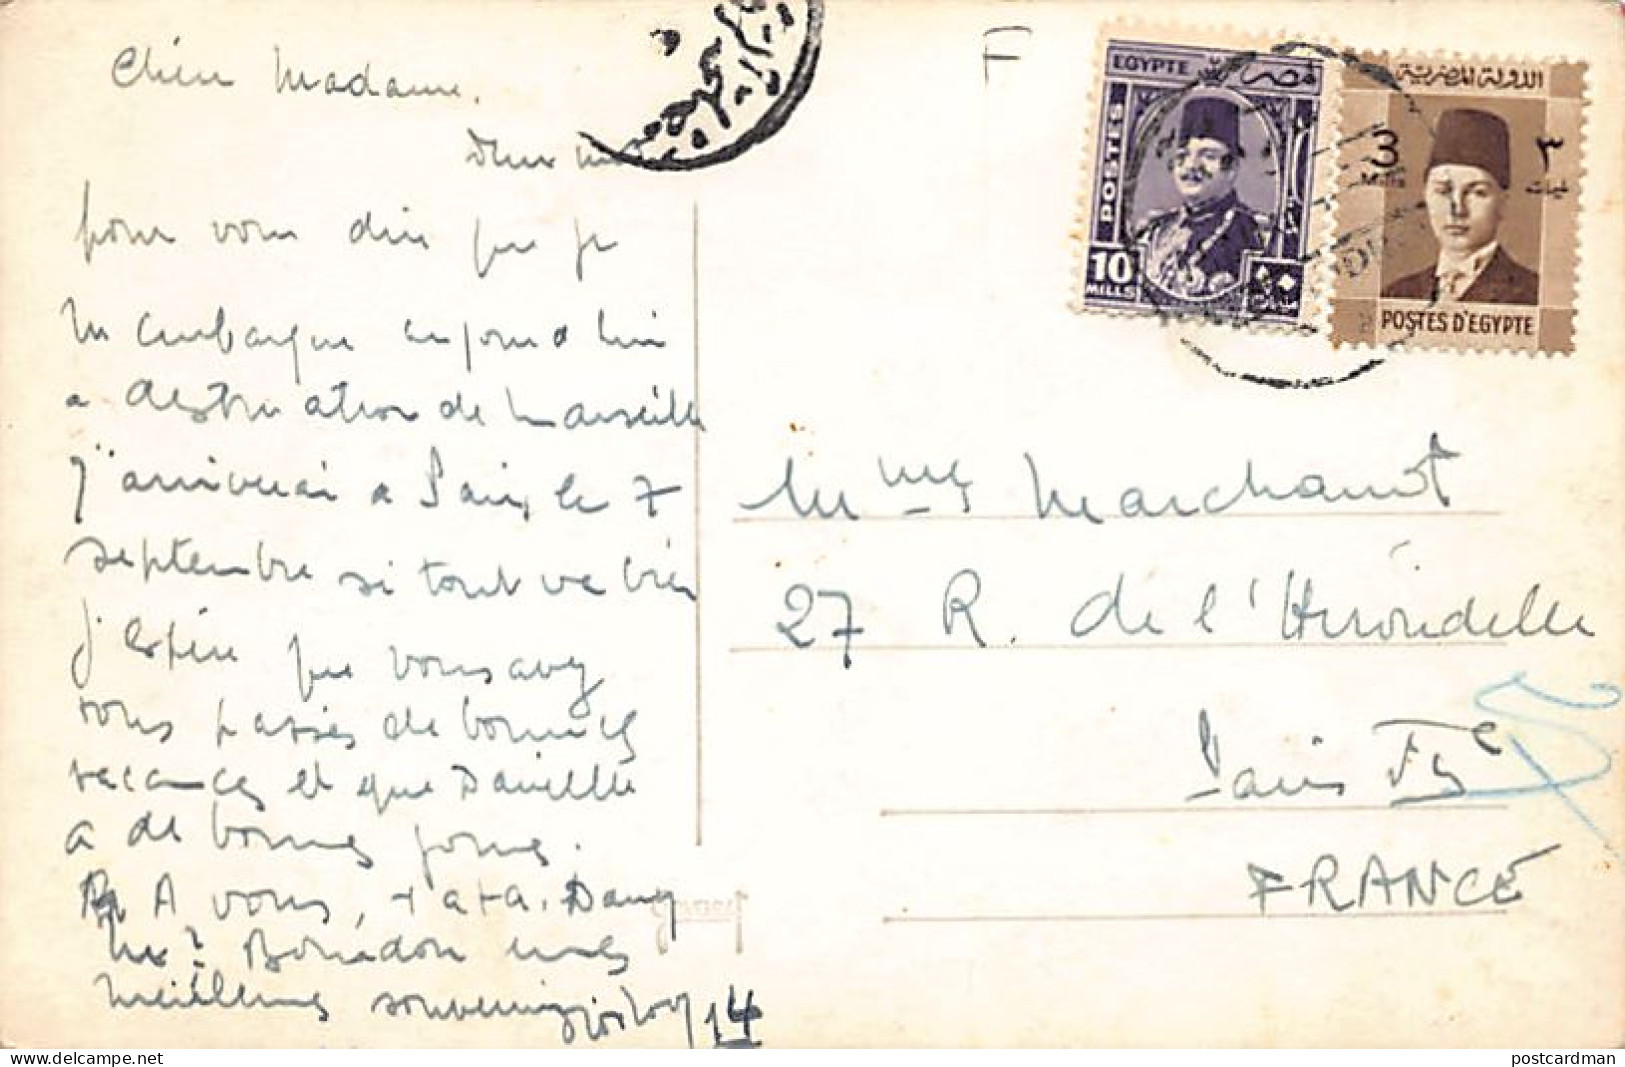 Chère Madame,
deux mots
pour vous dire que je
m'embarque aujourd'hui
a destination de Marseille
J'arriverai a Paris le 7
septembre si tout va bien
j'espère que vous avez
tous passés de bonnes
vacances et que Danielle
a de bonnes joues.
A vous, tata. Dany
Mr? Bourdon mes
meilleurs souvenirs
14
F
EGYPTE
مصر
POSTES
10
MILLS
١٠
مليمات
الدولة المصرية
3
Mills
٣
مليمات
POSTES D'EGYPTE
Mme Marchant
27 R. de l'Hirondelle
Paris Vye
FRANCE
postcardman